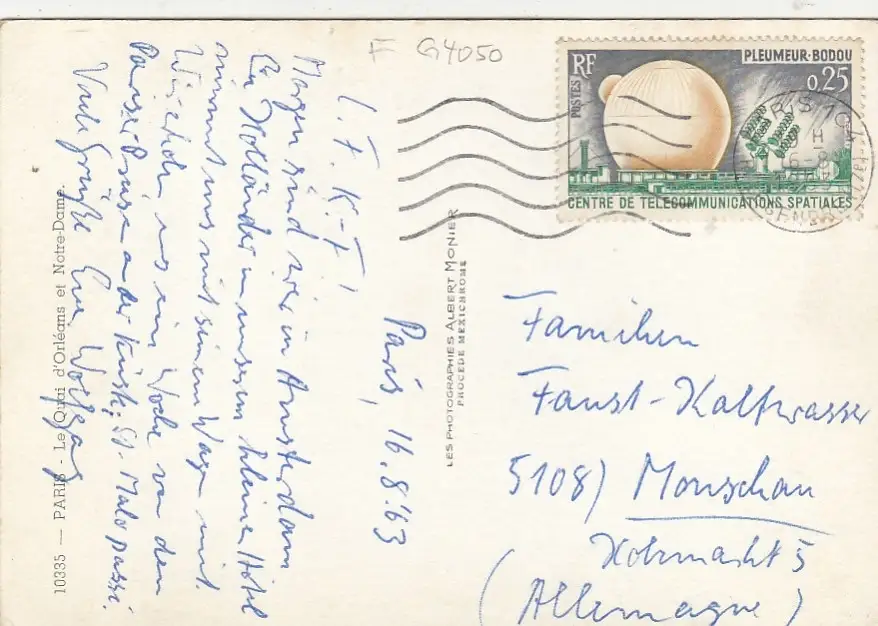 F G4050
RF
POSTES
PLEUMEUR-BODOU
0,25
CENTRE DE TELECOMMUNICATIONS SPATIALES
PARIS
16-8
Paris, 16.8.63
L. F. K.-F!
Morgen sind wir in Amsterdam
Ein Holländer in unserem kleinen Hotel
nimmt uns mit seinem Wagen mit.
Wir haben uns eine Woche von den
Pariser an der Küste, St. Malo
Viele Grüße Euer Wolfgang
10335 — PARIS - Le Quai d'Orléans et Notre-Dame.
LES PHOTOGRAPHIES ALBERT MONIER
PROCÉDÉ MEXICHROME
Familien
Faust-Kalfwasser
5108) Monschau
5
(Allemagne)